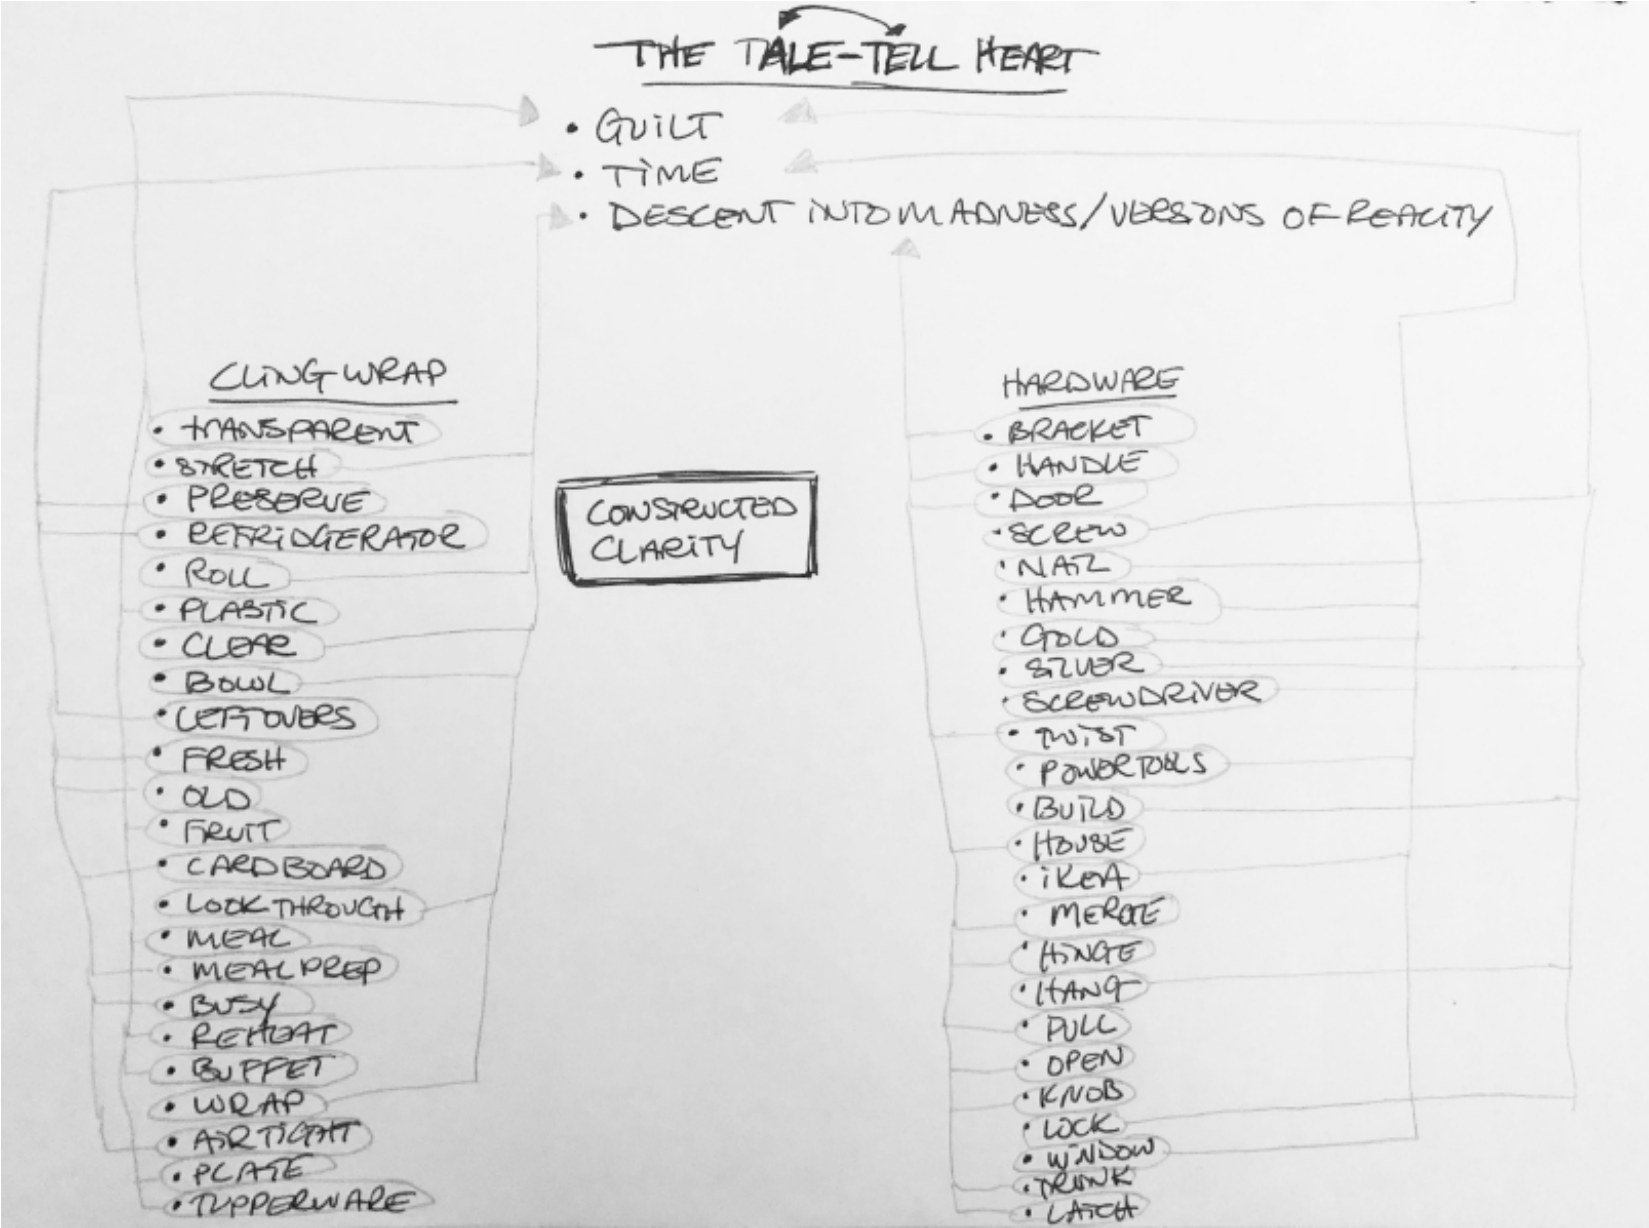 THE TALE-TELL HEART
• GUILT
• TIME
• DESCENT INTO MADNESS/VERSIONS OF REALITY
CLING WRAP
• TRANSPARENT
• STRETCH
• PRESERVE
• REFRIDGERATOR
• ROLL
• PLASTIC
• CLEAR
• BOWL
• LEFTOVERS
• FRESH
• OLD
• FRUIT
• CARDBOARD
• LOOK THROUGH
• MEAL
• MEAL PREP
• BUSY
• REHEAT
• BUFFET
• WRAP
• AIR TIGHT
• PLATE
• TUPPERWARE
CONSTRUCTED
CLARITY
HARDWARE
• BRACKET
• HANDLE
• DOOR
• SCREW
• NAIL
• HAMMER
• GOLD
• SILVER
• SCREWDRIVER
• TWIST
• POWERTOOLS
• BUILD
• HOUSE
• IKEA
• MERGE
• HINGE
• HANG
• PULL
• OPEN
• KNOB
• LOCK
• WINDOW
• TRUNK
• LATCH